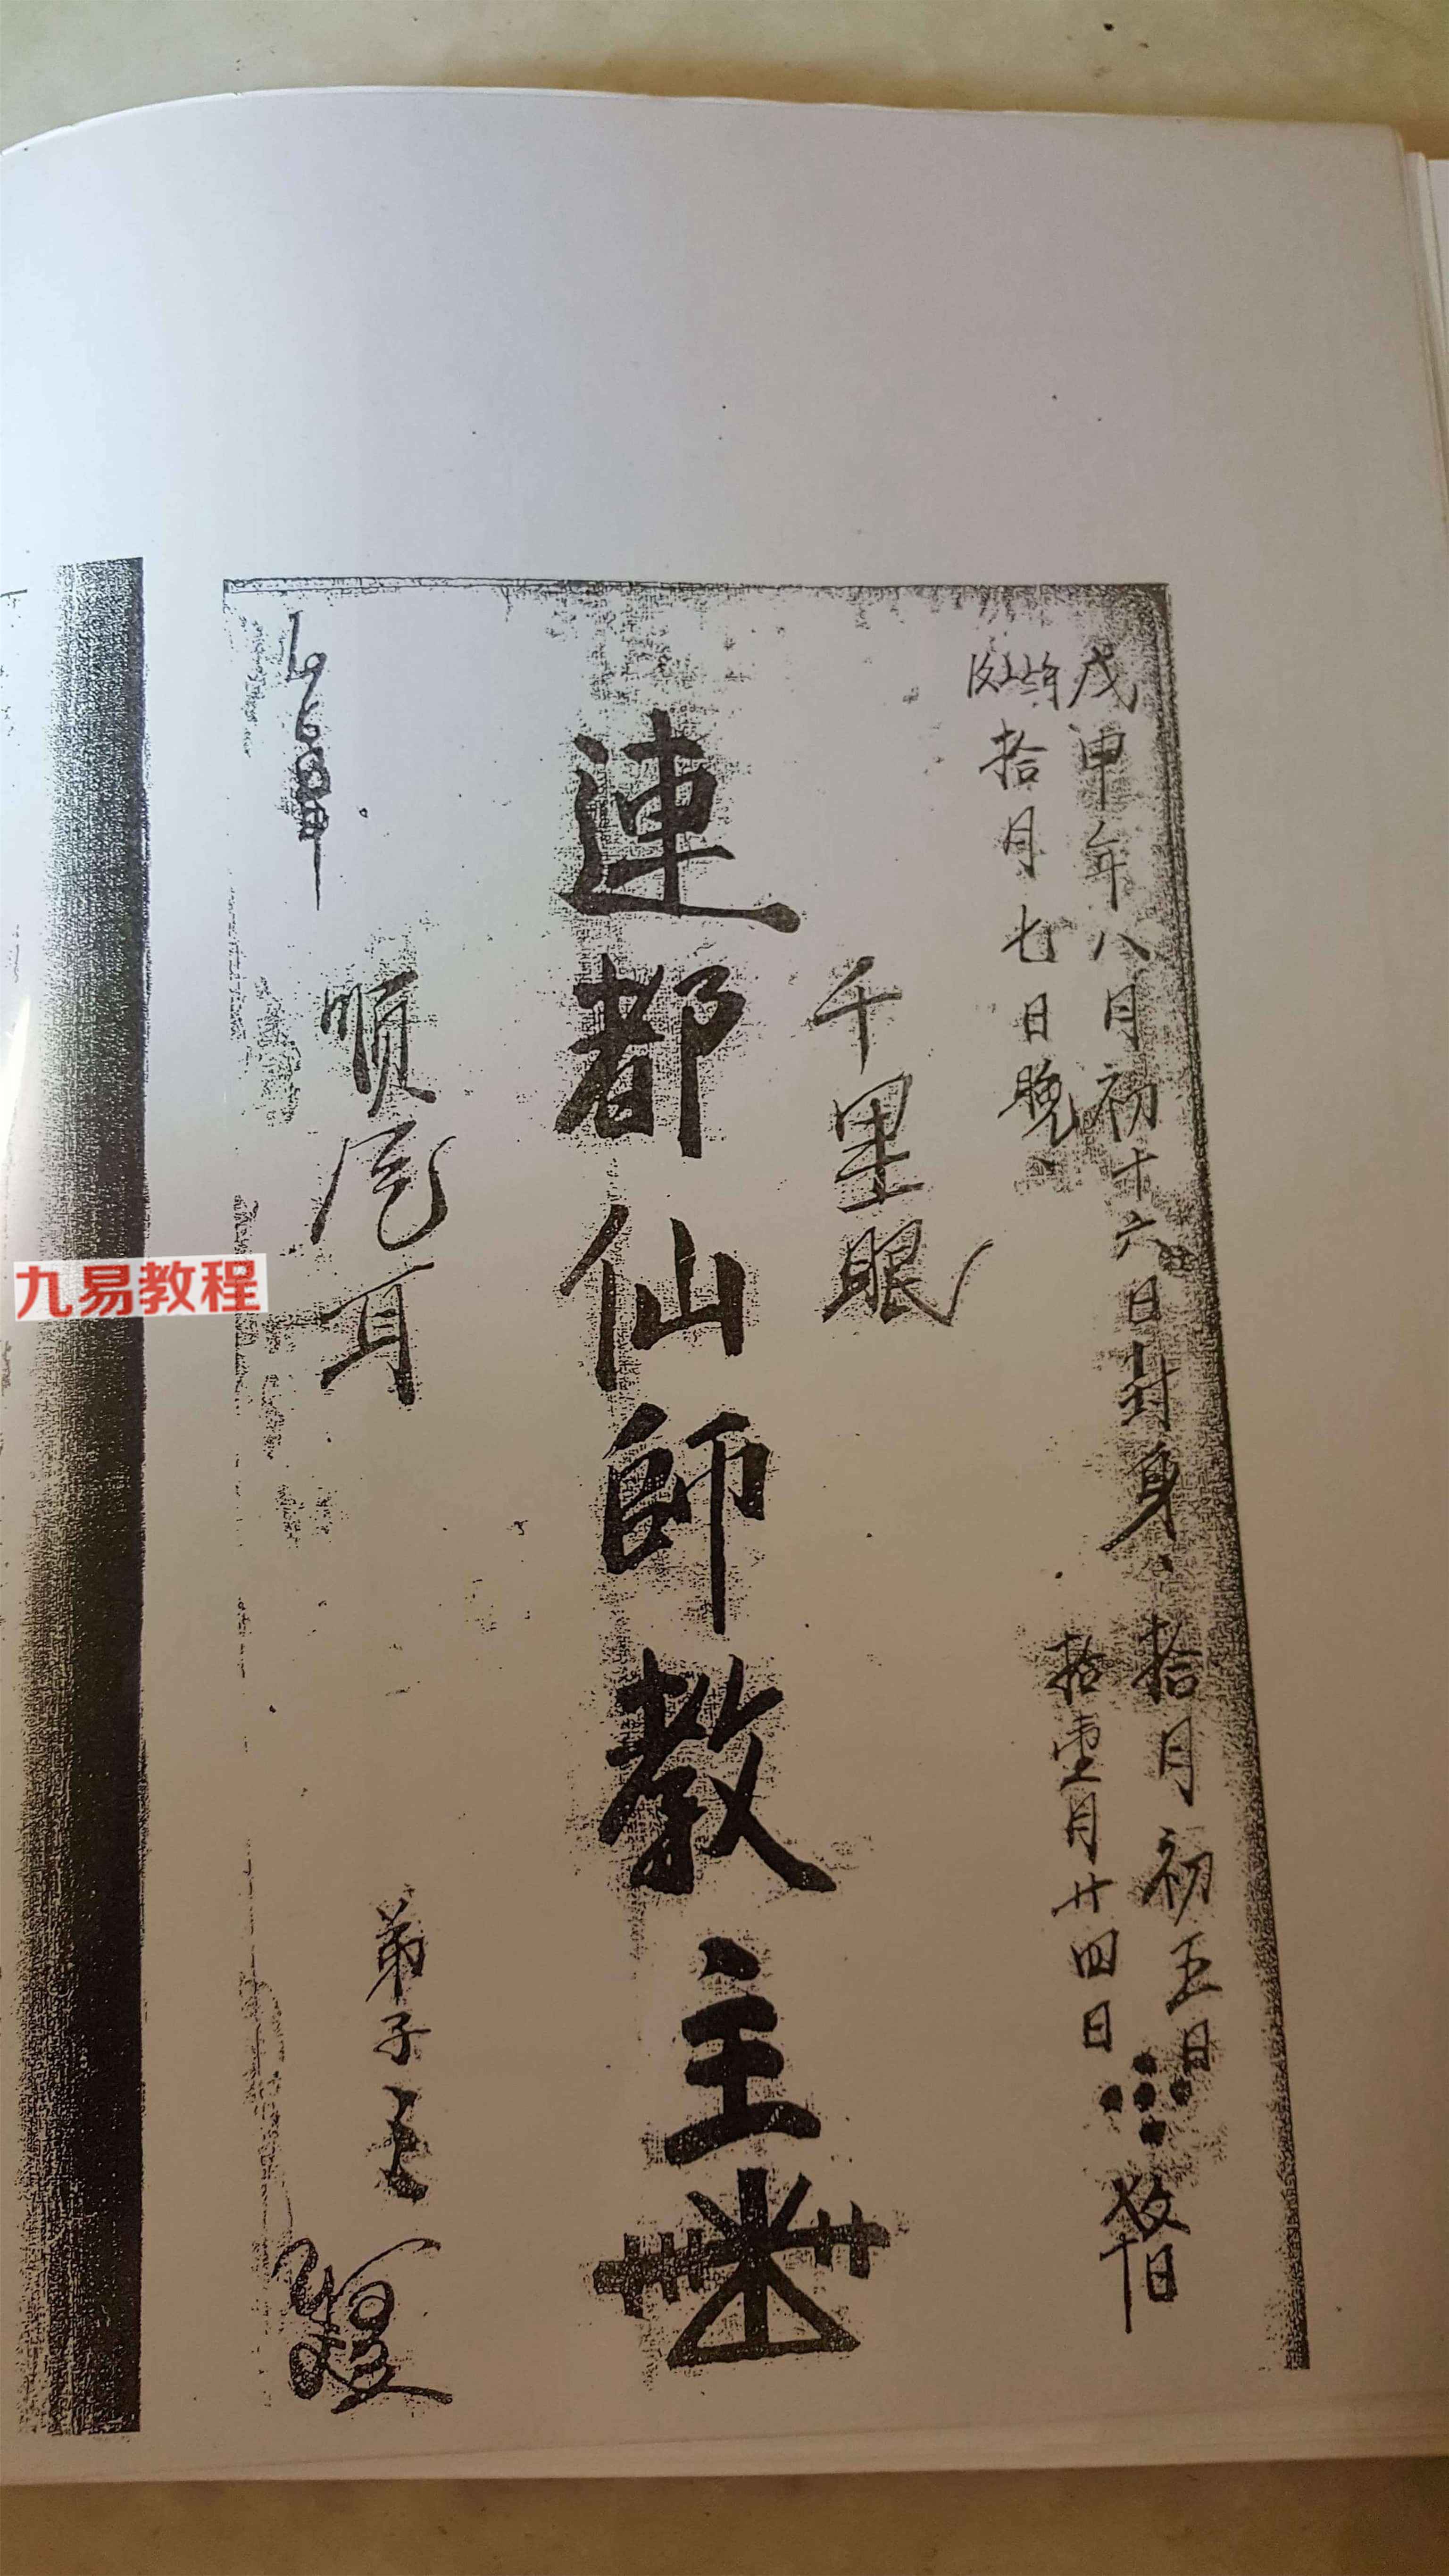 戊申年八月初十六日封身、拾月初五日
拾月七日晚、拾壹月廿四日
千里眼
連都仙師教主
順风耳
弟子
九易教程